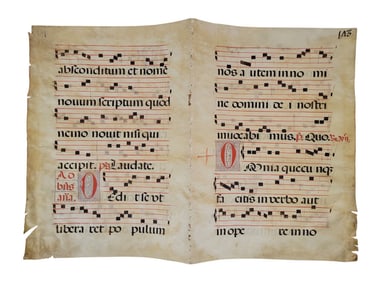 absconditum et nomē
novum scriptum quod
nemo novit nisi qui
accipit. ps Laudate.
Ad
O
Dedit se vt
libera ret po pulum
nos autem in no mi
ne domini de i nostri
invocabi mus. ps Quo
O
Omnia quecunq₃
fa citis in verbo aut
in ope re in no